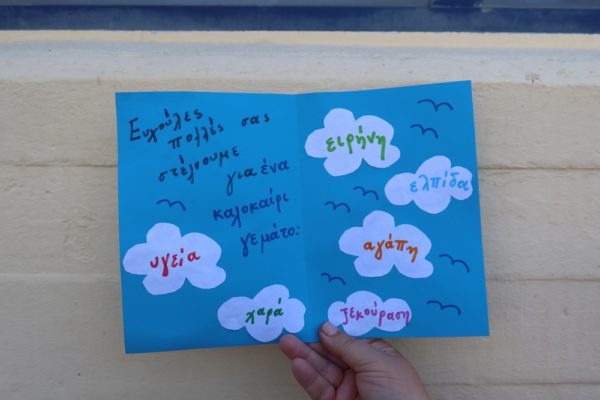 Ευχούλες
πολλές σας
στέλνουμε
για ένα
καλοκαίρι
γεμάτο:
υγεία
χαρά
ειρήνη
ελπίδα
αγάπη
ξεκούραση